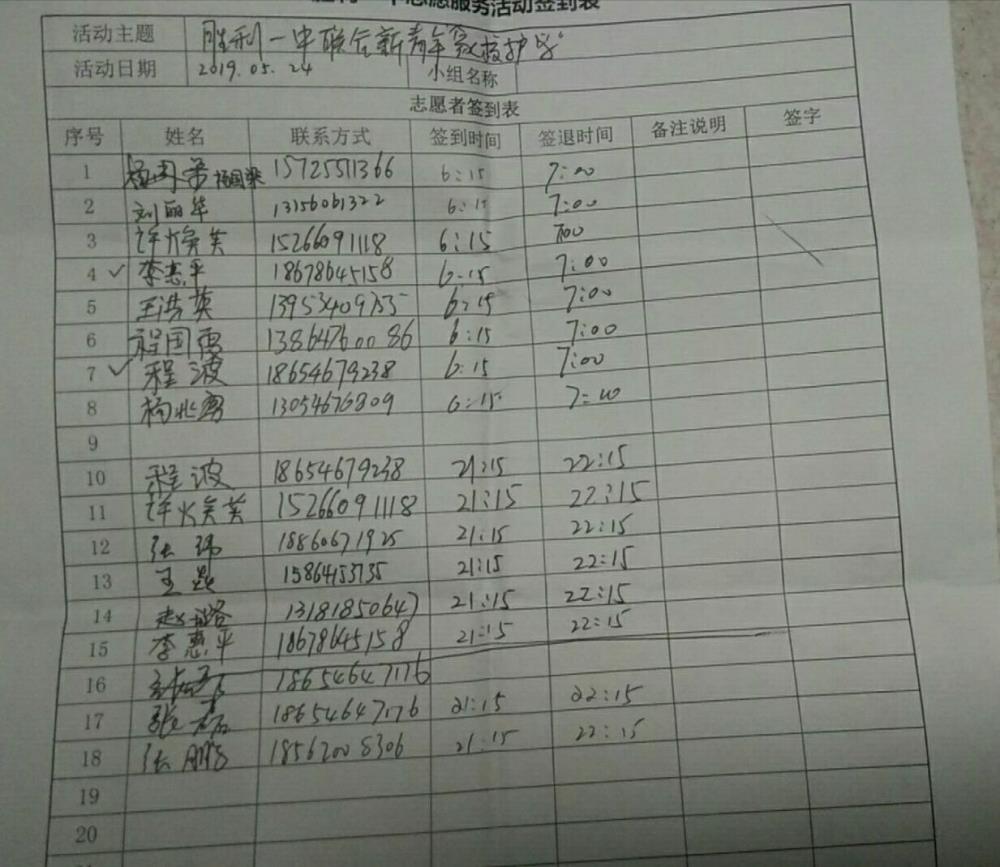 志愿服务活动签到表
活动主题 胜利一中联合新青年
活动日期 2019.05.24 小组名称
志愿者签到表
序号 姓名 联系方式 签到时间 签退时间 备注说明 签字
1 杨国荣 15725511366 6:15 7:00
2 刘丽华 13156061322 6:15 7:00
3 许焕英 15266091118 6:15 700
4 ✓ 李惠平 18678645158 6:15 7:00
5 王浩英 6:15 7:00
6 程国勇 13864760086 6:15 7:00
7 ✓ 程波 18654679238 6:15 7:00
8 杨兆勇 13054676809 6:15 7:00
9
10 程波 18654679238 21:15 22:15
11 许焕英 15266091118 21:15 22:15
12 张玮 18860671925 21:15 22:15
13 王磊 15864153735 21:15 22:15
14 赵璐 13181850647 21:15 22:15
15 李惠平 18678645158 21:15 22:15
16 18654647176
17 张磊 18654647176 21:15 22:15
18 张鹏 18562008306 21:15 22:15
19
20